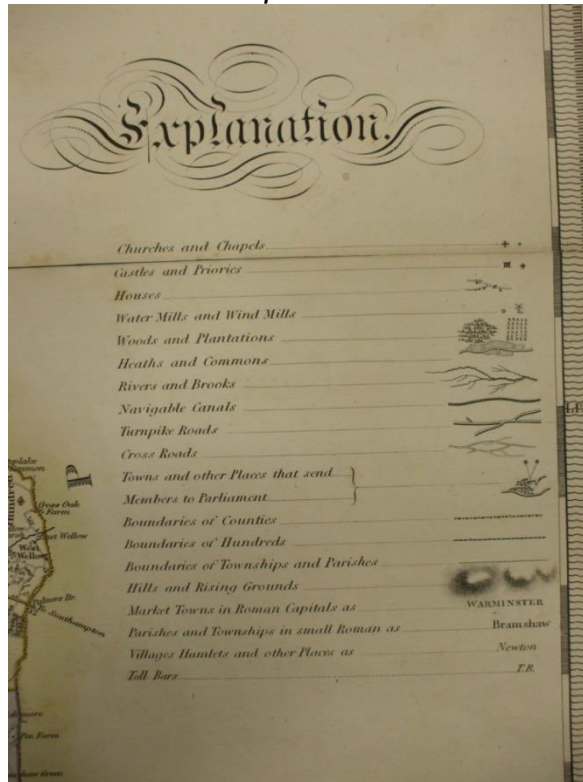 Explanation.
Churches and Chapels
Castles and Priories
Houses
Water Mills and Wind Mills
Woods and Plantations
Heaths and Commons
Rivers and Brooks
Navigable Canals
Turnpike Roads
Cross Roads
Towns and other Places that send
Members to Parliament
Boundaries of Counties
Boundaries of Hundreds
Boundaries of Townships and Parishes
Hills and Rising Grounds
Market Towns in Roman Capitals as WARMINSTER
Parishes and Townships in small Roman as Bramshaw
Villages Hamlets and other Places as Newton
Toll Bars T.B.
P
Cross Oak
Farm
West Wellow
West
Wellow
To Southampton
Pen Farm
Green